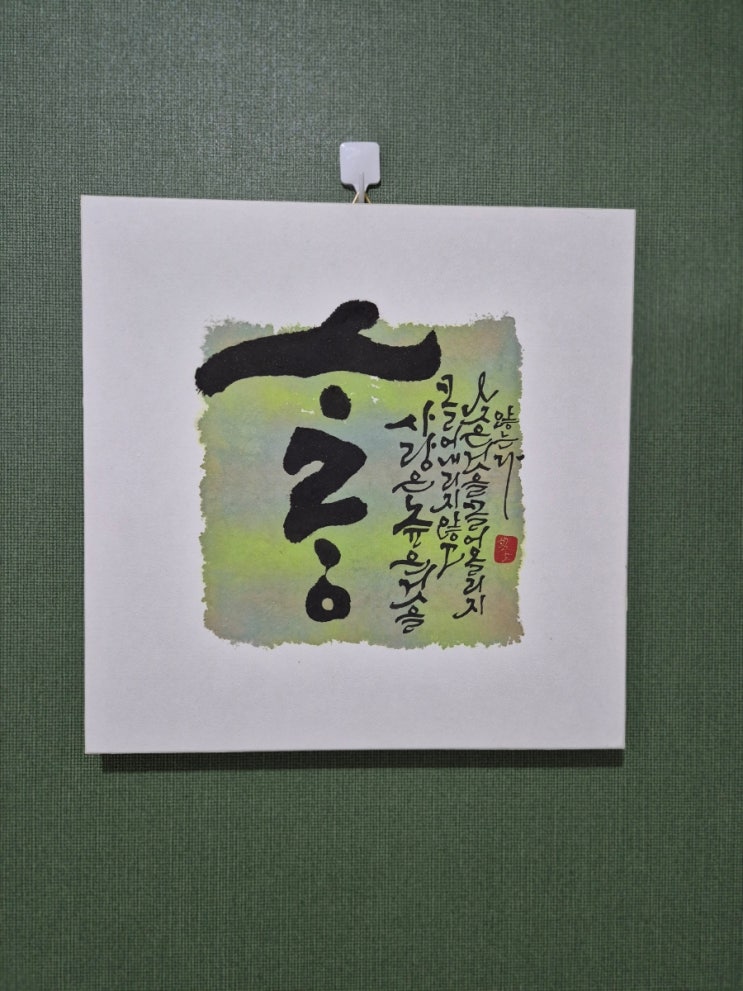 ᄉᆞᄅᆞᆼ
사랑은 높은것을
끌어내리지 않고
낮은것을 끌어올리지
않는다